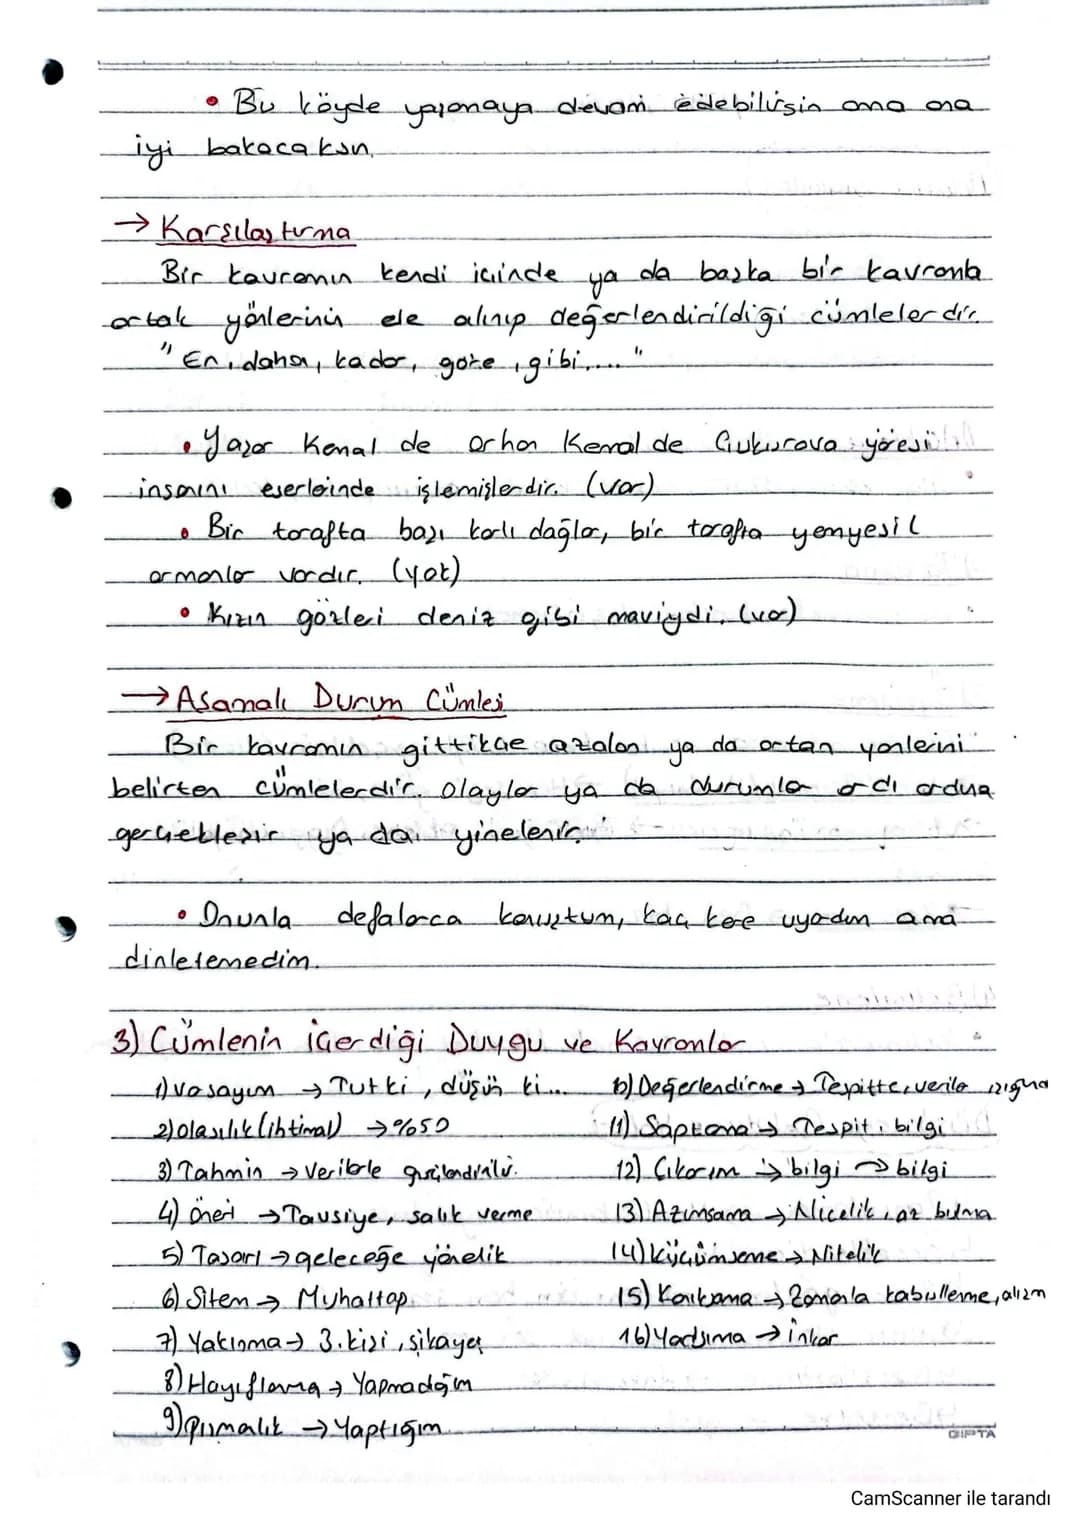 • Bu köyde yaşamaya devam edebilirsin ama ona
iyi bakacaksın.
→ Karşılaştırma
Bir kavramın kendi içinde ya da başka bir kavramla
ortak yönlerinin ele alınıp değerlendirildiği cümlelerdir.
"En, daha, kadar, göre, gibi,...."
• Yaşar Kemal de Orhan Kemal de Çukurova yöresi
insanını eserleinde işlemişlerdir. (var)
• Bir tarafta başı karlı dağlar, bir tarafta yemyeşil
ormanlar vardır. (yok)
• Kızın gözleri deniz gibi maviydi. (var)
→ Aşamalı Durum Cümlesi
Bir kavramın gittikçe azalan ya da artan yönlerini
belirten cümlelerdir. Olaylar ya da durumlar ardı ardına
gerçekleşir ya da yinelenir.
• Onunla defalarca konuştum, kaç kere uyardım ama
dinletemedim.
3) Cümlenin İçerdiği Duygu ve Kavramlar
1) Varsayım → Tut ki, düşün ki...
2) Olasılık (ihtimal) → %50
3) Tahmin → Verilerle güçlendirilir.
4) Öneri → Tavsiye, salık verme
5) Tasarı → geleceğe yönelik
6) Sitem → Muhattap
7) Yakınma → 3. kişi, şikayet
8) Hayıflanma → Yapmadığım
9) Pişmanlık → Yaptığım
10) Değerlendirme → Tespitte, veriler ışığında
11) Saptama → Tespit, bilgi
12) Çıkarım → bilgi → bilgi
13) Azımsama → Nicelik, az bulma
14) Küçümseme → Nitelik
15) Kanıksama → Zamanla kabullenme, alışma
16) Yadsıma → İnkar
GIPTA
CamScanner ile tarandı